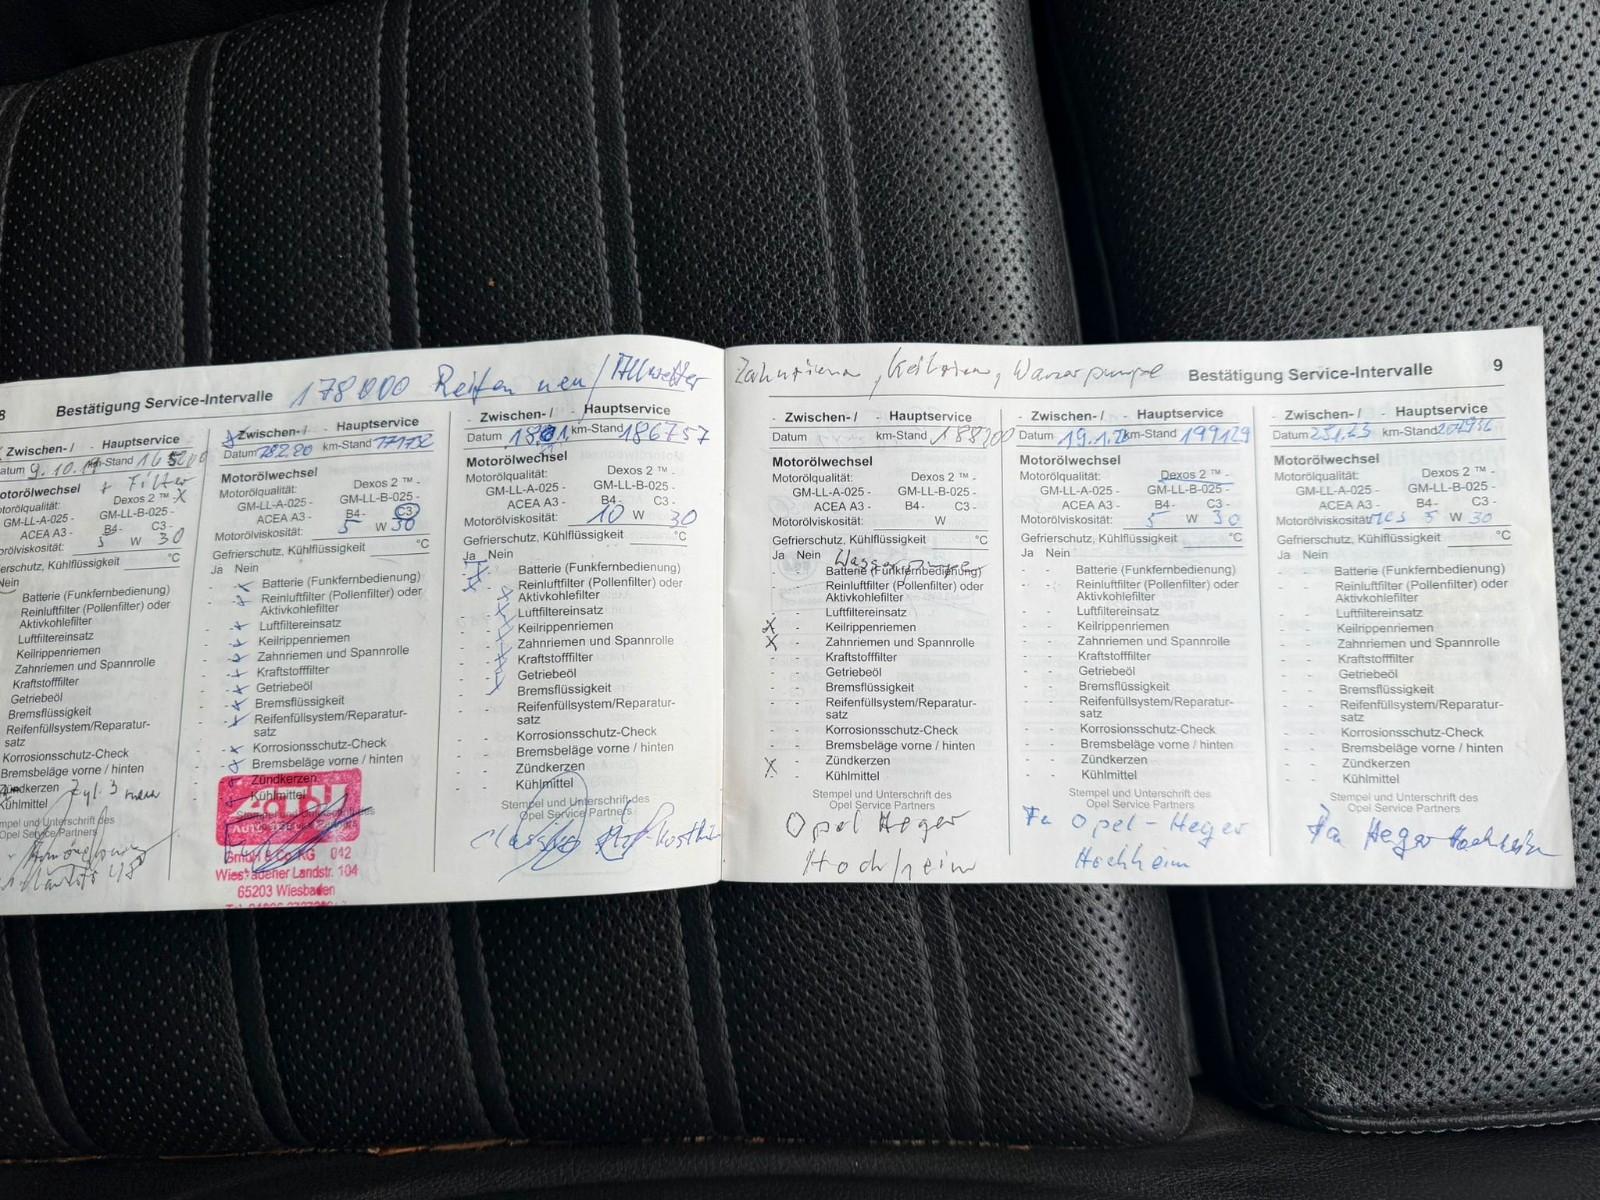 8 Bestätigung Service-Intervalle 178000 Reifen neu / Allwetter
Zwischen- / - Hauptservice
Datum 9.10.19 km-Stand
Motorölwechsel + Filter
Dexos 2 ™ - X
GM-LL-A-025 - GM-LL-B-025 -
ACEA A3 - B4- C3 -
Motorölviskosität: 5 W 30
Gefrierschutz, Kühlflüssigkeit °C
Nein
Batterie (Funkfernbedienung)
Reinluftfilter (Pollenfilter) oder
Aktivkohlefilter
Luftfiltereinsatz
Keilrippenriemen
Zahnriemen und Spannrolle
Kraftstofffilter
Getriebeöl
Bremsflüssigkeit
Reifenfüllsystem/Reparatur-
satz
Korrosionsschutz-Check
Bremsbeläge vorne / hinten
Zündkerzen Zyl. 3 neu
Kühlmittel
Stempel und Unterschrift des
Opel Service Partners
Zwischen- / - Hauptservice
Datum km-Stand 171732
Motorölwechsel
Motorölqualität: Dexos 2 ™ -
GM-LL-A-025 - GM-LL-B-025 -
ACEA A3 - B4- C3 -
Motorölviskosität: 5 W 30
Gefrierschutz, Kühlflüssigkeit °C
Ja Nein
- x Batterie (Funkfernbedienung)
- x Reinluftfilter (Pollenfilter) oder
Aktivkohlefilter
- x Luftfiltereinsatz
- x Keilrippenriemen
- x Zahnriemen und Spannrolle
- x Kraftstofffilter
- x Getriebeöl
- x Bremsflüssigkeit
- x Reifenfüllsystem/Reparatur-
satz
- x Korrosionsschutz-Check
- x Bremsbeläge vorne / hinten
- x Zündkerzen
- x Kühlmittel
Stempel und Unterschrift des
GmbH & Co. KG 042
Wiesbadener Landstr. 104
65203 Wiesbaden
- Zwischen- / - Hauptservice
Datum km-Stand 186757
Motorölwechsel
Motorölqualität: Dexos 2 ™ -
GM-LL-A-025 - GM-LL-B-025 -
ACEA A3 - B4- C3 -
Motorölviskosität: 10 W 30
Gefrierschutz, Kühlflüssigkeit °C
Ja Nein
Batterie (Funkfernbedienung)
Reinluftfilter (Pollenfilter) oder
Aktivkohlefilter
Luftfiltereinsatz
Keilrippenriemen
Zahnriemen und Spannrolle
Kraftstofffilter
Getriebeöl
Bremsflüssigkeit
- - Reifenfüllsystem/Reparatur-
satz
- - Korrosionsschutz-Check
- - Bremsbeläge vorne / hinten
- - Zündkerzen
- - Kühlmittel
Stempel und Unterschrift des
Opel Service Partners
Zahnriemen, Keilriemen, Wasserpumpe Bestätigung Service-Intervalle 9
- Zwischen- / - Hauptservice
Datum km-Stand 188200
Motorölwechsel
Motorölqualität: Dexos 2 ™ -
GM-LL-A-025 - GM-LL-B-025 -
ACEA A3 - B4- C3 -
Motorölviskosität: W
Gefrierschutz, Kühlflüssigkeit °C
Ja Nein Wasserpumpe
- - Batterie (Funkfernbedienung)
- - Reinluftfilter (Pollenfilter) oder
Aktivkohlefilter
- - Luftfiltereinsatz
x - Keilrippenriemen
x - Zahnriemen und Spannrolle
- - Kraftstofffilter
- - Getriebeöl
- - Bremsflüssigkeit
- - Reifenfüllsystem/Reparatur-
satz
- - Korrosionsschutz-Check
- - Bremsbeläge vorne / hinten
- - Zündkerzen
x - Kühlmittel
Stempel und Unterschrift des
Opel Service Partners
Opel Heger
Hochheim
- Zwischen- / - Hauptservice
Datum km-Stand 199129
Motorölwechsel
Motorölqualität: Dexos 2 ™ -
GM-LL-A-025 - GM-LL-B-025 -
ACEA A3 - B4- C3 -
Motorölviskosität: 5 W 30
Gefrierschutz, Kühlflüssigkeit °C
Ja Nein
- - Batterie (Funkfernbedienung)
- - Reinluftfilter (Pollenfilter) oder
Aktivkohlefilter
- - Luftfiltereinsatz
- - Keilrippenriemen
- - Zahnriemen und Spannrolle
- - Kraftstofffilter
- - Getriebeöl
- - Bremsflüssigkeit
- - Reifenfüllsystem/Reparatur-
satz
- - Korrosionsschutz-Check
- - Bremsbeläge vorne / hinten
- - Zündkerzen
- - Kühlmittel
Stempel und Unterschrift des
Opel Service Partners
Fa Opel-Heger
Hochheim
- Zwischen- / - Hauptservice
Datum 25.1.23 km-Stand
Motorölwechsel
Motorölqualität: Dexos 2 ™ -
GM-LL-A-025 - GM-LL-B-025 -
ACEA A3 - B4- C3 -
Motorölviskosität: 5 W 30
Gefrierschutz, Kühlflüssigkeit °C
Ja Nein
- - Batterie (Funkfernbedienung)
- - Reinluftfilter (Pollenfilter) oder
Aktivkohlefilter
- - Luftfiltereinsatz
- - Keilrippenriemen
- - Zahnriemen und Spannrolle
- - Kraftstofffilter
- - Getriebeöl
- - Bremsflüssigkeit
- - Reifenfüllsystem/Reparatur-
satz
- - Korrosionsschutz-Check
- - Bremsbeläge vorne / hinten
- - Zündkerzen
- - Kühlmittel
Stempel und Unterschrift des
Opel Service Partners
Fa Heger Hochheim